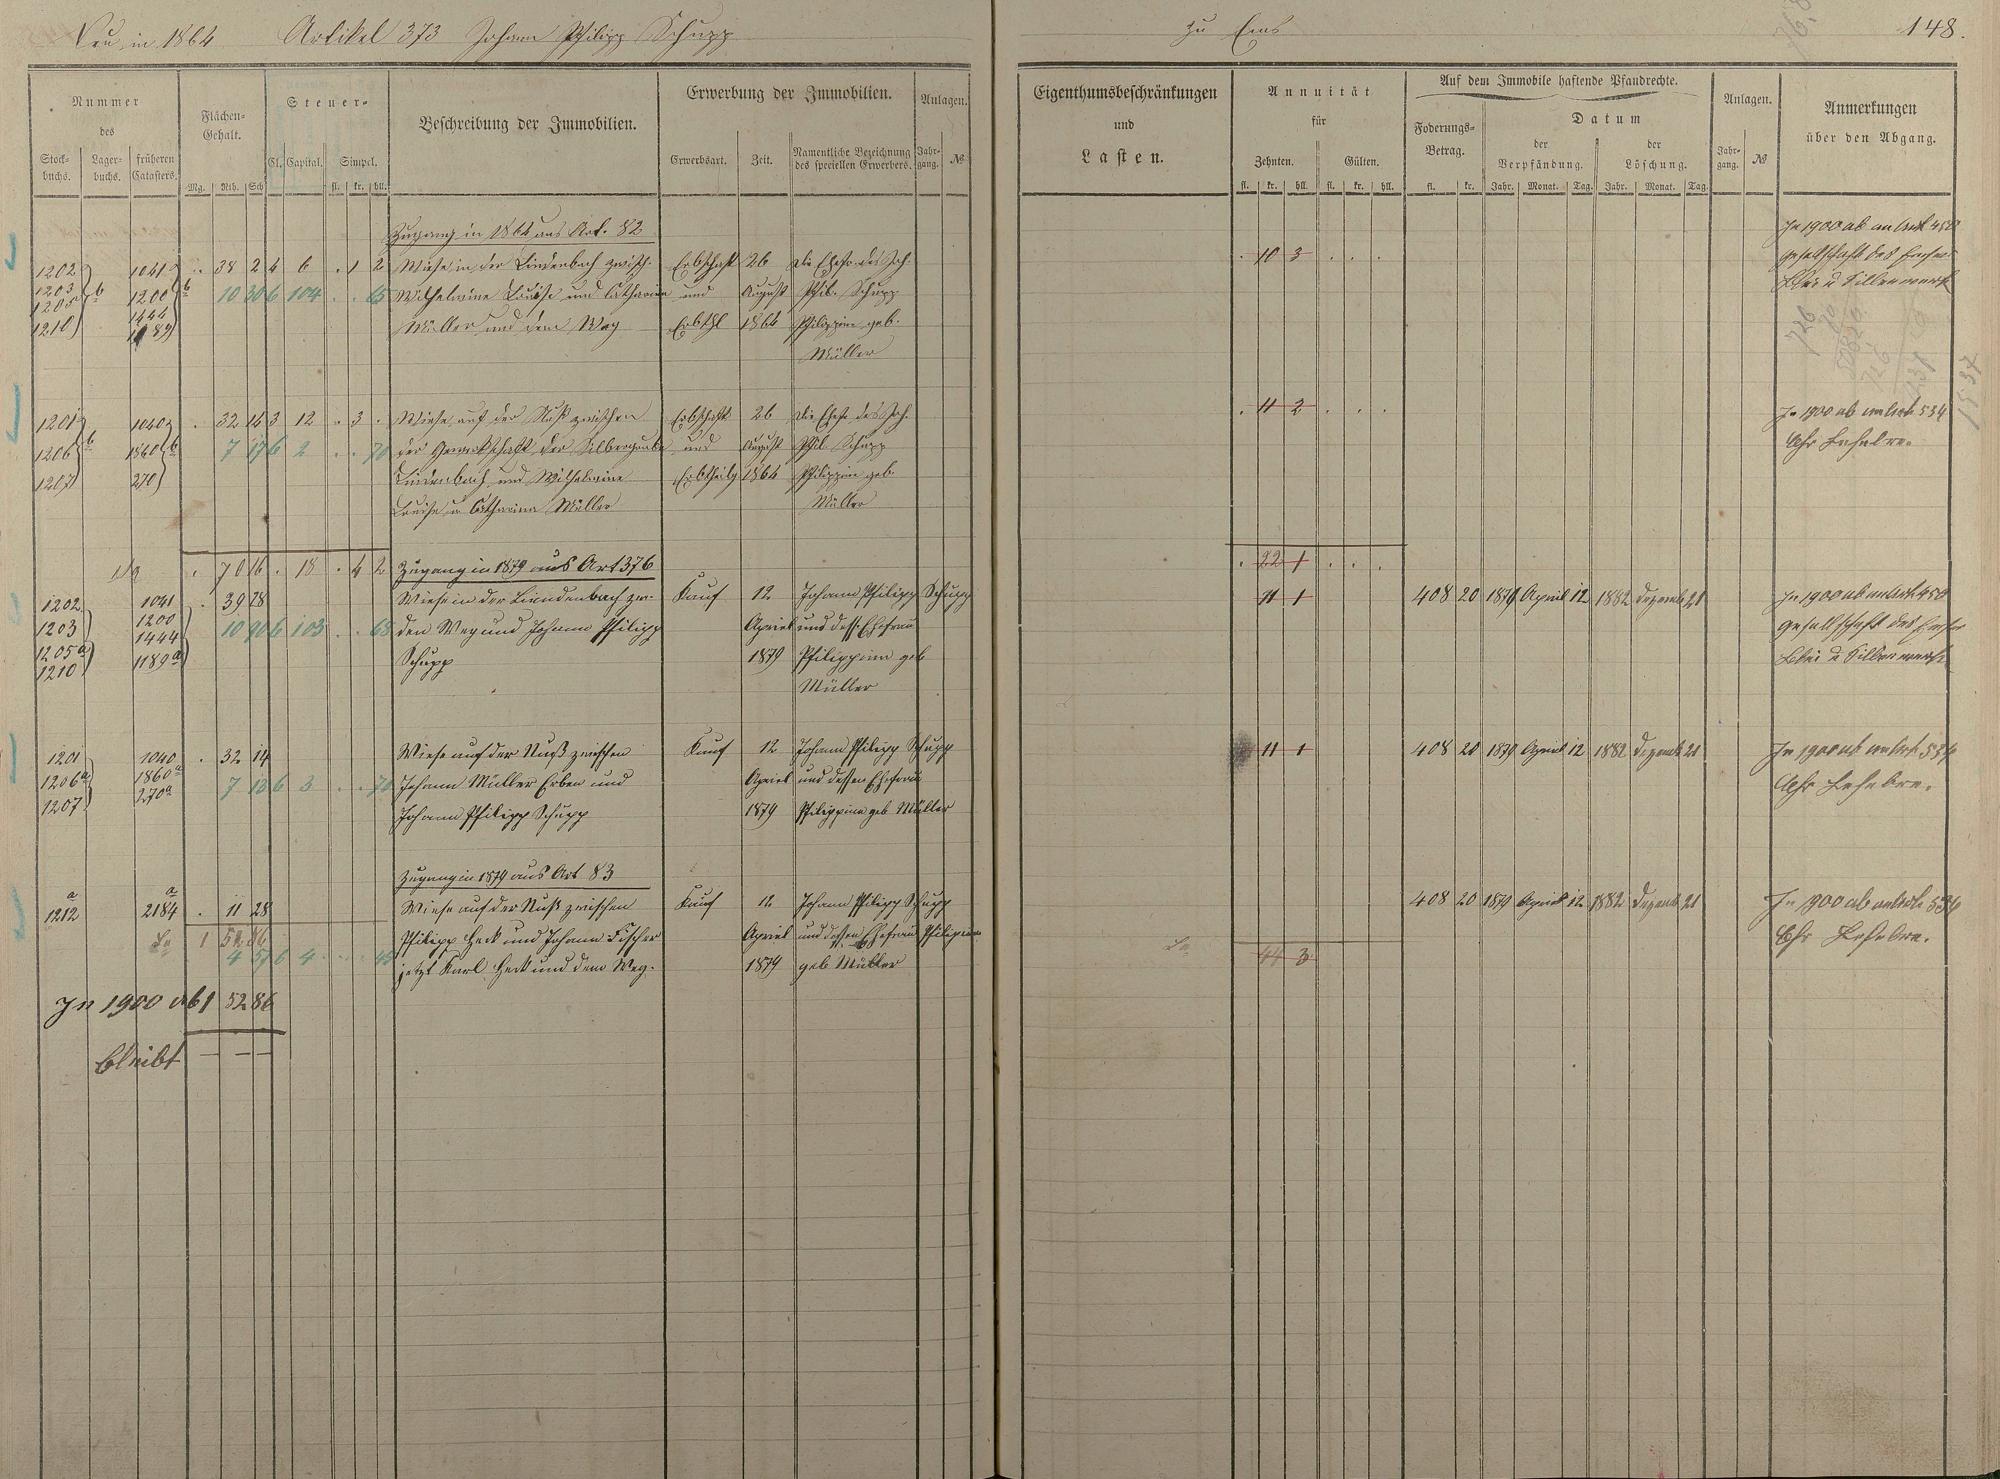 Neu in 1864 Artikel 373 Johann Philipp Schupp
zu Ems
148.
Nummer
des
Stock-
buchs.
Lager-
buchs.
früheren
Catasters.
Flächen-
Gehalt.
Mg. Rth. Sch
Steuer-
Cl. Capital. Simpel.
fl. kr. hll.
Beschreibung der Immobilien.
Erwerbung der Immobilien.
Erwerbsart. Zeit.
Namentliche Bezeichnung
des speciellen Erwerbers.
Anlagen.
Jahr-
gang. №
Eigenthumsbeschränkungen
und
Lasten.
Annuität
für
Zehnten. Gülten.
fl. kr. hll. fl. kr. hll.
Auf dem Immobile haftende Pfandrechte.
Foderungs-
Betrag.
fl. kr.
Datum
der
Verpfändung.
der
Löschung.
Jahr. Monat. Tag. Jahr. Monat. Tag.
Anlagen.
Jahr-
gang. №
Anmerkungen
über den Abgang.
Zugang in 1864 aus Art. 82
1202 1041 38 2 4 6 . 1 2 Wiese in der Lindenbach zwisch. Erbschaft 26 die Ehefr. des Joh. 10 3
1203 1200 b 10 30 6 104 . . 65 Wilhelmine Louise und Catharina und August Phil. Schupp
1205 b 1444
1210 1189 Müller und dem Weg Erbthl 1864 Philippine geb.
Müller
In 1900 ab an Art 450
Gesellschaft des Emser
Blei u Silberwerk
1201 1040 . 32 14 3 12 . 3 . Wiese auf der Nuß zwischen Erbschaft 26 die Ehefr. des Joh. 11 2
1206 b 1860 b 7 17 6 2 . . 70 der Gewerkschaft der Silbergrube und August Phil Schupp
1207 270 Lindenbach und Wilhelmine Erbtheilg 1864 Philippine geb
Louise u Catharina Müller Müller
In 1900 ab an Art 534
. 70 16 . 18 . 4 2 Zugang in 1879 aus Art 376 . 22 1
1202 1041 . 39 28 Wiese in der Liendenbach zw. Kauf 12 Johann Philipp Schupp 11 1 408 20 1879 April 12 1882 Dezemb 21
1203 1200 10 90 6 103 . . 68 den Weg und Johann Philipp Apriel und dess. Ehefrau
1205 a 1444
1210 1189 a Schupp 1879 Philippine geb
Müller
In 1900 ab an Art 450
Gesellschaft des Emser
Blei u Silberwerk
1201 1040 . 32 14 Wiese auf der Nuß zwischen Kauf 12 Johann Philipp Schupp 11 1 408 20 1879 April 12 1882 Dezemb 21
1206 a 1860 a 7 18 6 3 . . 70 Johann Müller Erben und Apriel und dessen Ehefrau
1207 270 a Johann Philipp Schupp 1879 Philippine geb Müller
In 1900 ab an Art 534
Zugang in 1879 aus Art 83
1212 a 2184 a . 11 28 Wiese auf der Nuß zwischen Kauf 12 Johann Philipp Schupp 408 20 1879 April 12 1882 Dezemb 21
1 52 86 Philipp Heck und Johann Fischer Apriel und dessen Ehefrau Philipine
4 57 6 4 . . 45 jetzt Karl Heck und dem Weg. 1879 geb Müller 44 3
In 1900 ab an Art 534
In 1900 ab 1 52 86
bleibt — — —